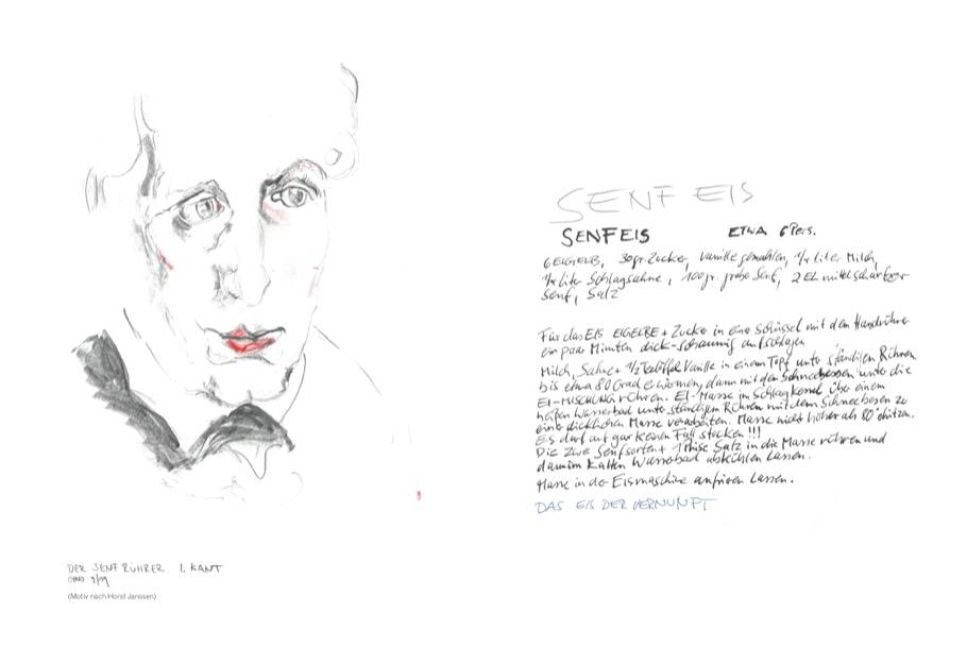 SENF EIS
SENFEIS ETWA 6 Pers.
6 EIGELB, 30 gr. Zucker, Vanille gemahlen, 1/4 Liter Milch,
1/4 Liter Schlagsahne, 100 gr. grobe Senf, 2 EL mittelscharfer
Senf, Salz
Für das EIS EIGELBE + Zucker in eine Schüssel mit dem Handrührer
ein paar Minuten dick-schaumig aufschlagen
Milch, Sahne + 1/2 Teelöffel Vanille in einem Topf unter ständigen Rühren
bis etwa 80 Grad erwärmen, dann mit den Schneebesen unter die
EI-MISCHUNG rühren. EI-Masse im Schlagkessel über einem
heißen Wasserbad unter ständigen Rühren mit dem Schneebesen zu
einer dicklichen Masse verarbeiten. Masse nicht höher als 80° erhitzen.
Es darf auf gar keinen Fall stocken !!!
Die zwei Senfsorten + 1 Prise Salz in die Masse rühren und
dann im kalten Wasserbad abkühlen lassen.
Masse in der Eismaschine anfrieren lassen.
DAS EIS DER VERNUNFT
DER SENFRÜHRER I. KANT
(Motiv nach Horst Janssen)